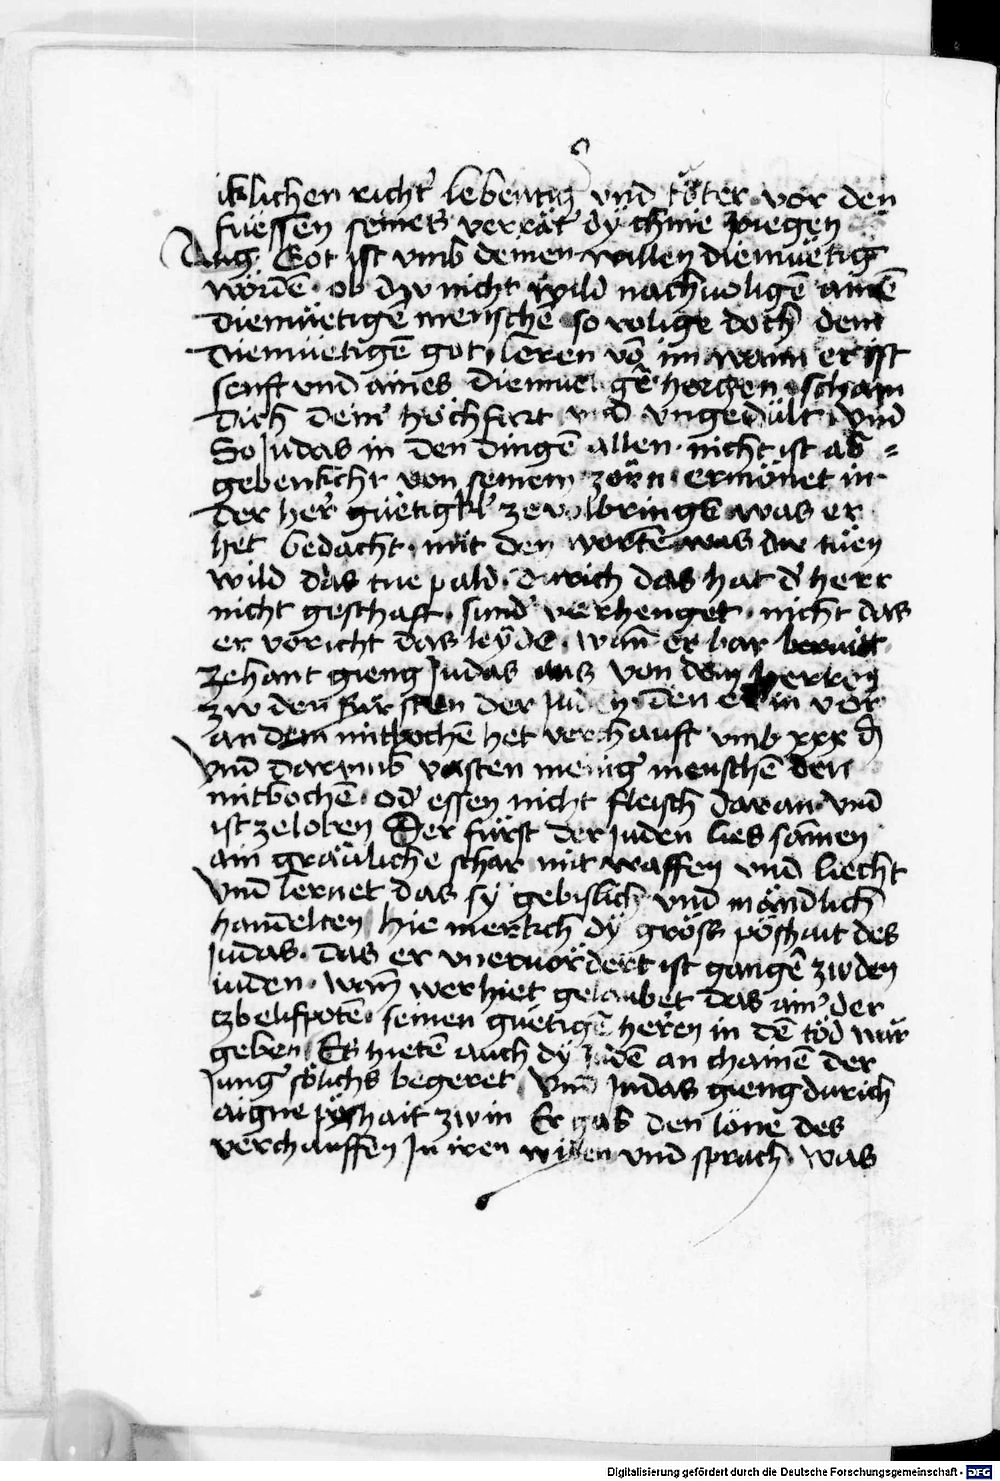 iklichen richt' lebentig vnd töter vor den
füessen seines verrät' dÿ chnie piegen
Aug Got ist vmb deinen willen diemüetig
wordē · ob dw nicht wild nachuoligē ainē
diemüetigē menschē so volige doch dem
diemüetigē got lernen vō im wann er ist
senft vnd aines herczen · scham
dich deiner hochfart vnd vngedult · vnd
So Judas in den dingē allen · nicht ist ab =
gebenkcht von seinem zorn · ermönet in
der her' güetigkl' zeuolbringē was er
het bedacht · mit den wortē was dw tuen
wild das tue pald · durich das hat d' herr
nicht geschaft · sund' verhenget · nicht das
er voricht das leÿdē · wan̄ er bar beruitt
zehant gieng Judas aus von dem herren
zw den fürsten der juden den er in vor
an dem mitbochē het verchauft vmb xxx ₰
vnd darumb vasten menig' menschē den
mitbochē · od' essen nicht fleisch daran · vnd
ist zeloben Der fürst der juden lies sāmen
ain gräuliche schar mit waffen vnd liecht
vnd lernet das sÿ gebislich vnd mändlich
handelten hie merkch dÿ gröss pöshait des
Judas · das er vneruördert ist gangē zw den
juden · wan̄ wer hiet gelaubet das ain' der
czbelifpotē · seinen guetigē herren in dē töd wär
geben Es hietē auch dÿ judē an chainē der
Jung' sölichs begeret vnd Judas gieng durich
aigne pöshait zw in Er gab den löne des
verchauffen Jn iren willen vnd sprach · was
Digitalisierung gefördert durch die Deutsche Forschungsgemeinschaft - DFG